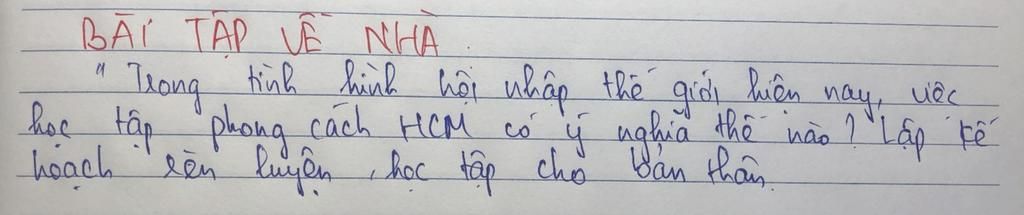 BÀI TẬP VỀ NHÀ.
" Trong tình hình hội nhập thế giới hiện nay, việc
học tập phong cách HCM có ý nghĩa thế nào? Lập kế
hoạch rèn luyện, học tập cho bản thân.